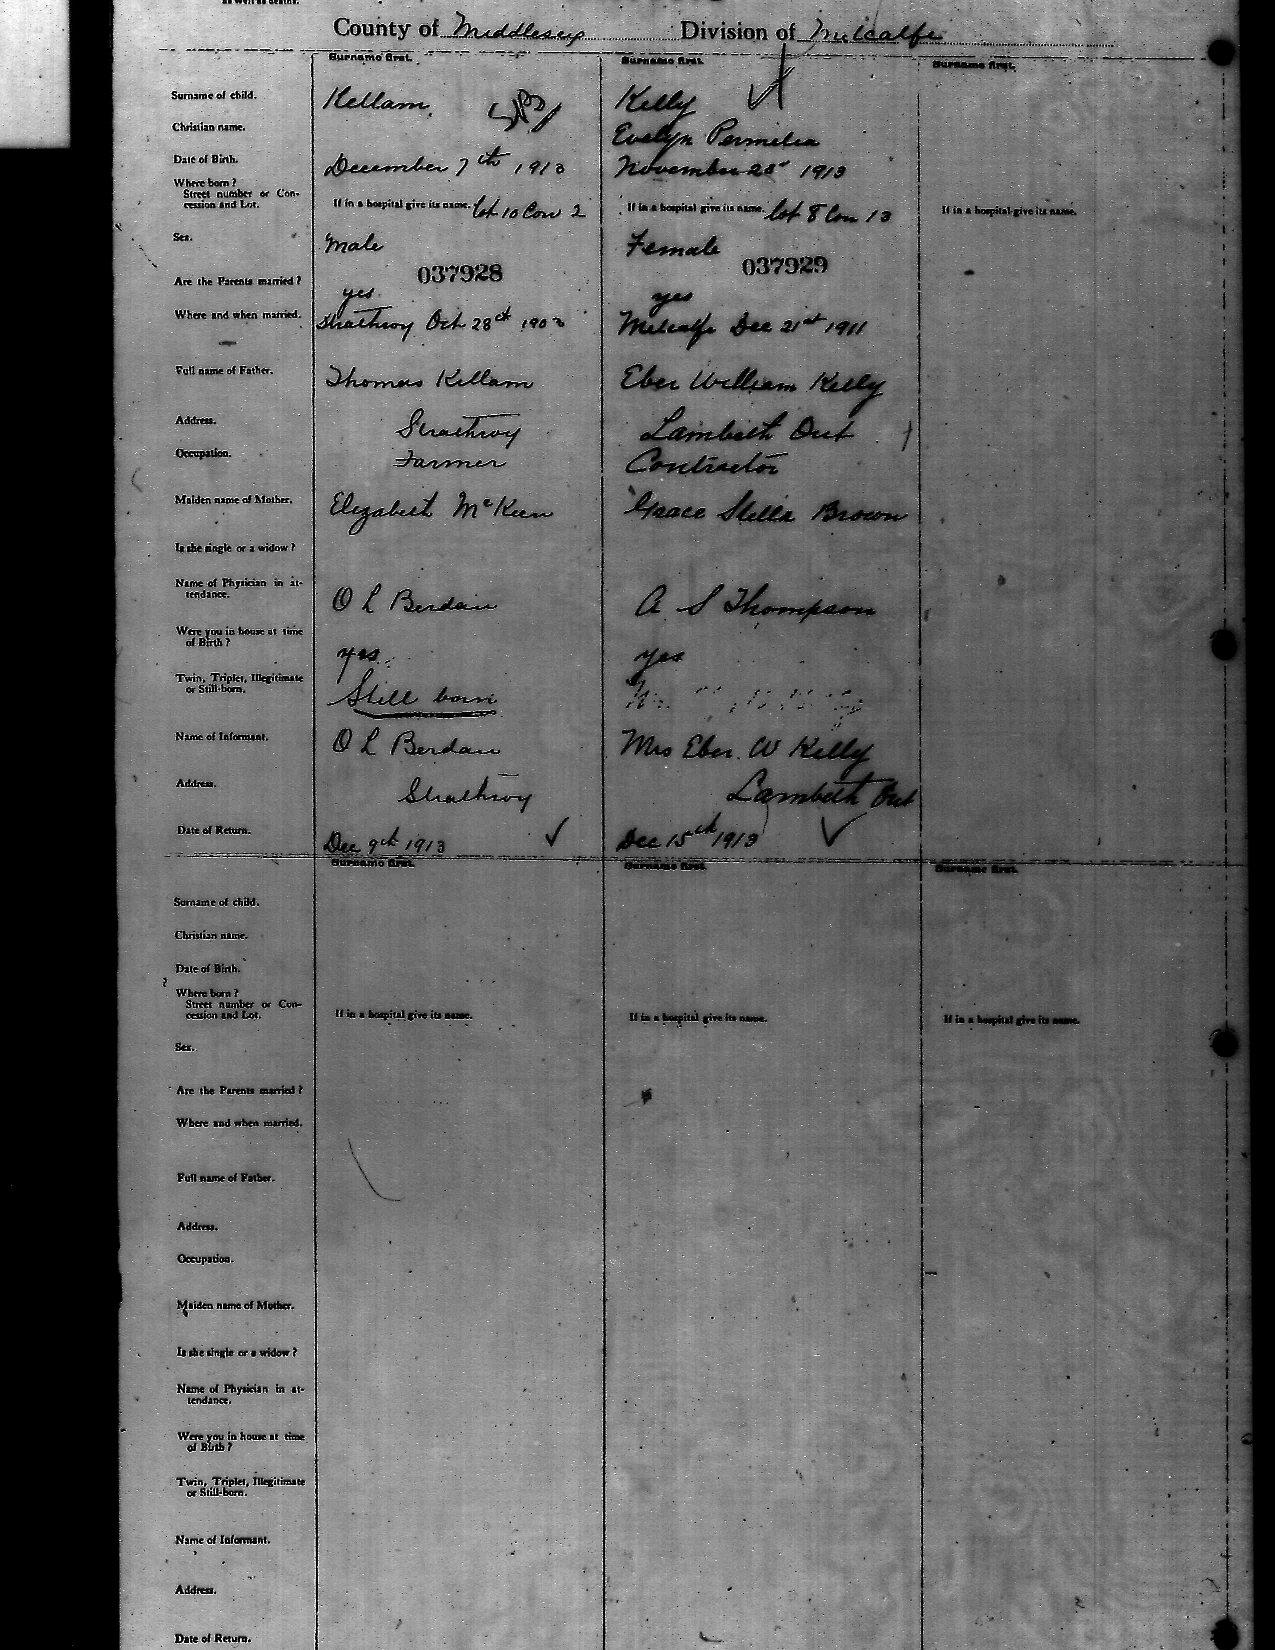 as well as deaths.
County of Middlesex Division of Metcalfe
Surname first. Surname first. Surname first.
Surname of child. Kellam Kelly
Christian name. Evelyn Permelia
Date of Birth. December 7th 1913 November 1913
Where born?
Street number or Con-
cession and Lot. If in a hospital give its name. Lot 10 Con 2 If in a hospital give its name. Lot 8 Con 13 If in a hospital give its name.
Sex. Male Female
037928 037929
Are the Parents married? yes yes
Where and when married. Strathroy Oct 28th Metcalfe Dec 21st 1911
Full name of Father. Thomas Kellam Eber William Kelly
Address. Strathroy Lambeth Ont
Occupation. Farmer Contractor
Maiden name of Mother. Elizabeth McKeen Grace Stella Brown
Is she single or a widow?
Name of Physician in at-
tendance. O L Berdan A S Thompson
Were you in house at time
of Birth? yes yes
Twin, Triplet, Illegitimate
or Still-born. Still born
Name of Informant. O L Berdan Mrs Eber W Kelly
Address. Strathroy Lambeth Ont
Date of Return. Dec 9th 1913 Dec 15th 1913
Surname first. Surname first. Surname first.
Surname of child.
Christian name.
Date of Birth.
Where born?
Street number or Con-
cession and Lot. If in a hospital give its name. If in a hospital give its name. If in a hospital give its name.
Sex.
Are the Parents married?
Where and when married.
Full name of Father.
Address.
Occupation.
Maiden name of Mother.
Is she single or a widow?
Name of Physician in at-
tendance.
Were you in house at time
of Birth?
Twin, Triplet, Illegitimate
or Still-born.
Name of Informant.
Address.
Date of Return.